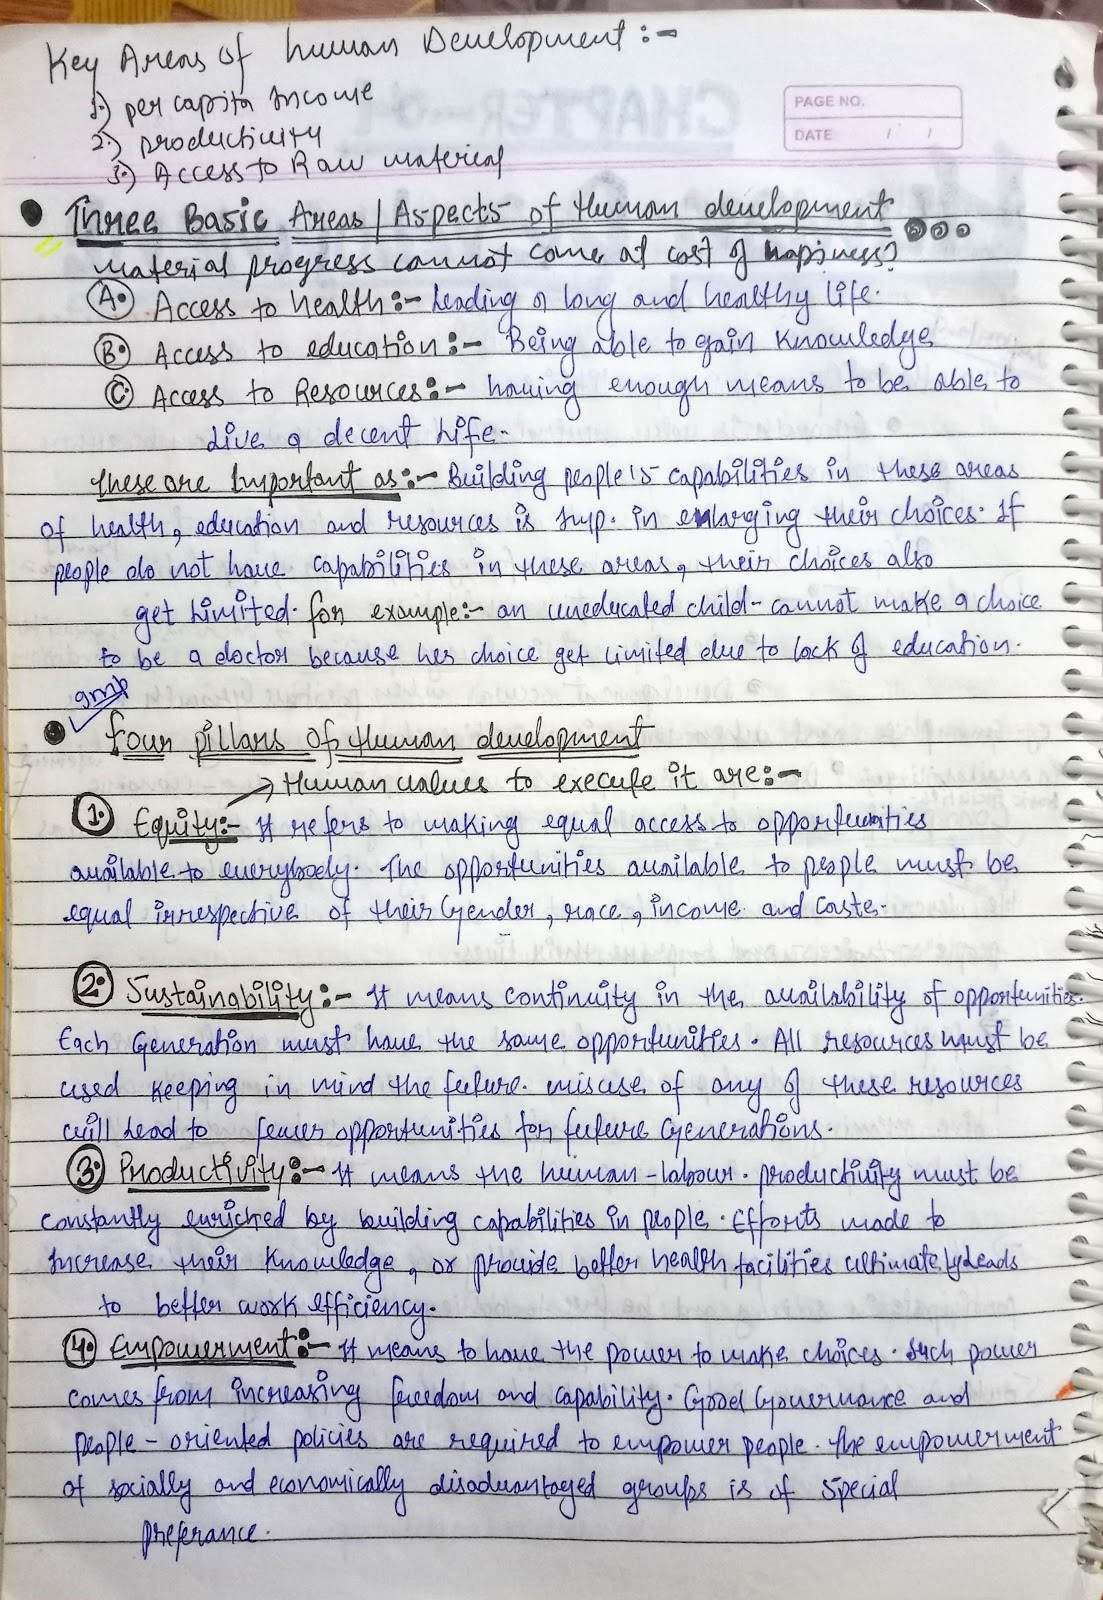 Key Areas of human Development:-
1.) per capita Income
2.) productivity
3.) Access to Raw material
PAGE NO.
DATE / /
Three Basic Areas / Aspects of Human development
material progress cannot come at cost of happiness?
A. Access to health:- Leading a long and healthy life.
B. Access to education:- Being able to gain Knowledge
C. Access to Resources:- having enough means to be able to
Live a decent Life.
these are Important as:- Building people's capabilities in these areas
of health, education and resources is Imp. in enlarging their choices. If
people do not have capabilities in these areas, their choices also
get Limited. for example:- an uneducated child - cannot make a choice
to be a doctor because her choice get limited due to lack of education.
Four pillars of Human development
→ Human values to execute it are:-
1. Equity:- It refers to making equal access to opportunities
available to everybody. The opportunities available to people must be
equal irrespective of their Gender, race, income and caste.
2. Sustainability:- It means continuity in the availability of opportunities.
Each Generation must have the same opportunities. All resources must be
used keeping in mind the future. misuse of any of these resources
will Lead to fewer opportunities for future Generations.
3. Productivity:- It means the human-labour. productivity must be
constantly enriched by building capabilities in people. Efforts made to
Increase their Knowledge, or provide better health facilities ultimately Leads
to better work efficiency.
4. Empowerment:- It means to have the power to make choices. Such power
comes from increasing freedom and capability. Good Governance and
people-oriented policies are required to empower people. The empowerment
of socially and economically disadvantaged groups is of Special
preferance.